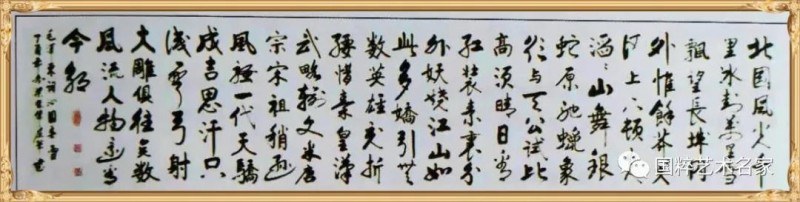 北国風光千
里冰封萬里雪
飄望長城内
外惟餘莽莽大
河上下頓失
滔滔山舞銀
蛇原馳蠟象
欲与天公试比
高須晴日看
紅裝素裹分
外妖嬈江山如
此多嬌引無
數英雄竞折
腰惜秦皇漢
武略输文采唐
宗宋祖稍逊
風騷一代天驕
成吉思汗只
識彎弓射
大雕俱往矣數
風流人物还看
今朝
毛泽東词沁园春雪
丁酉年
国粹艺术名家